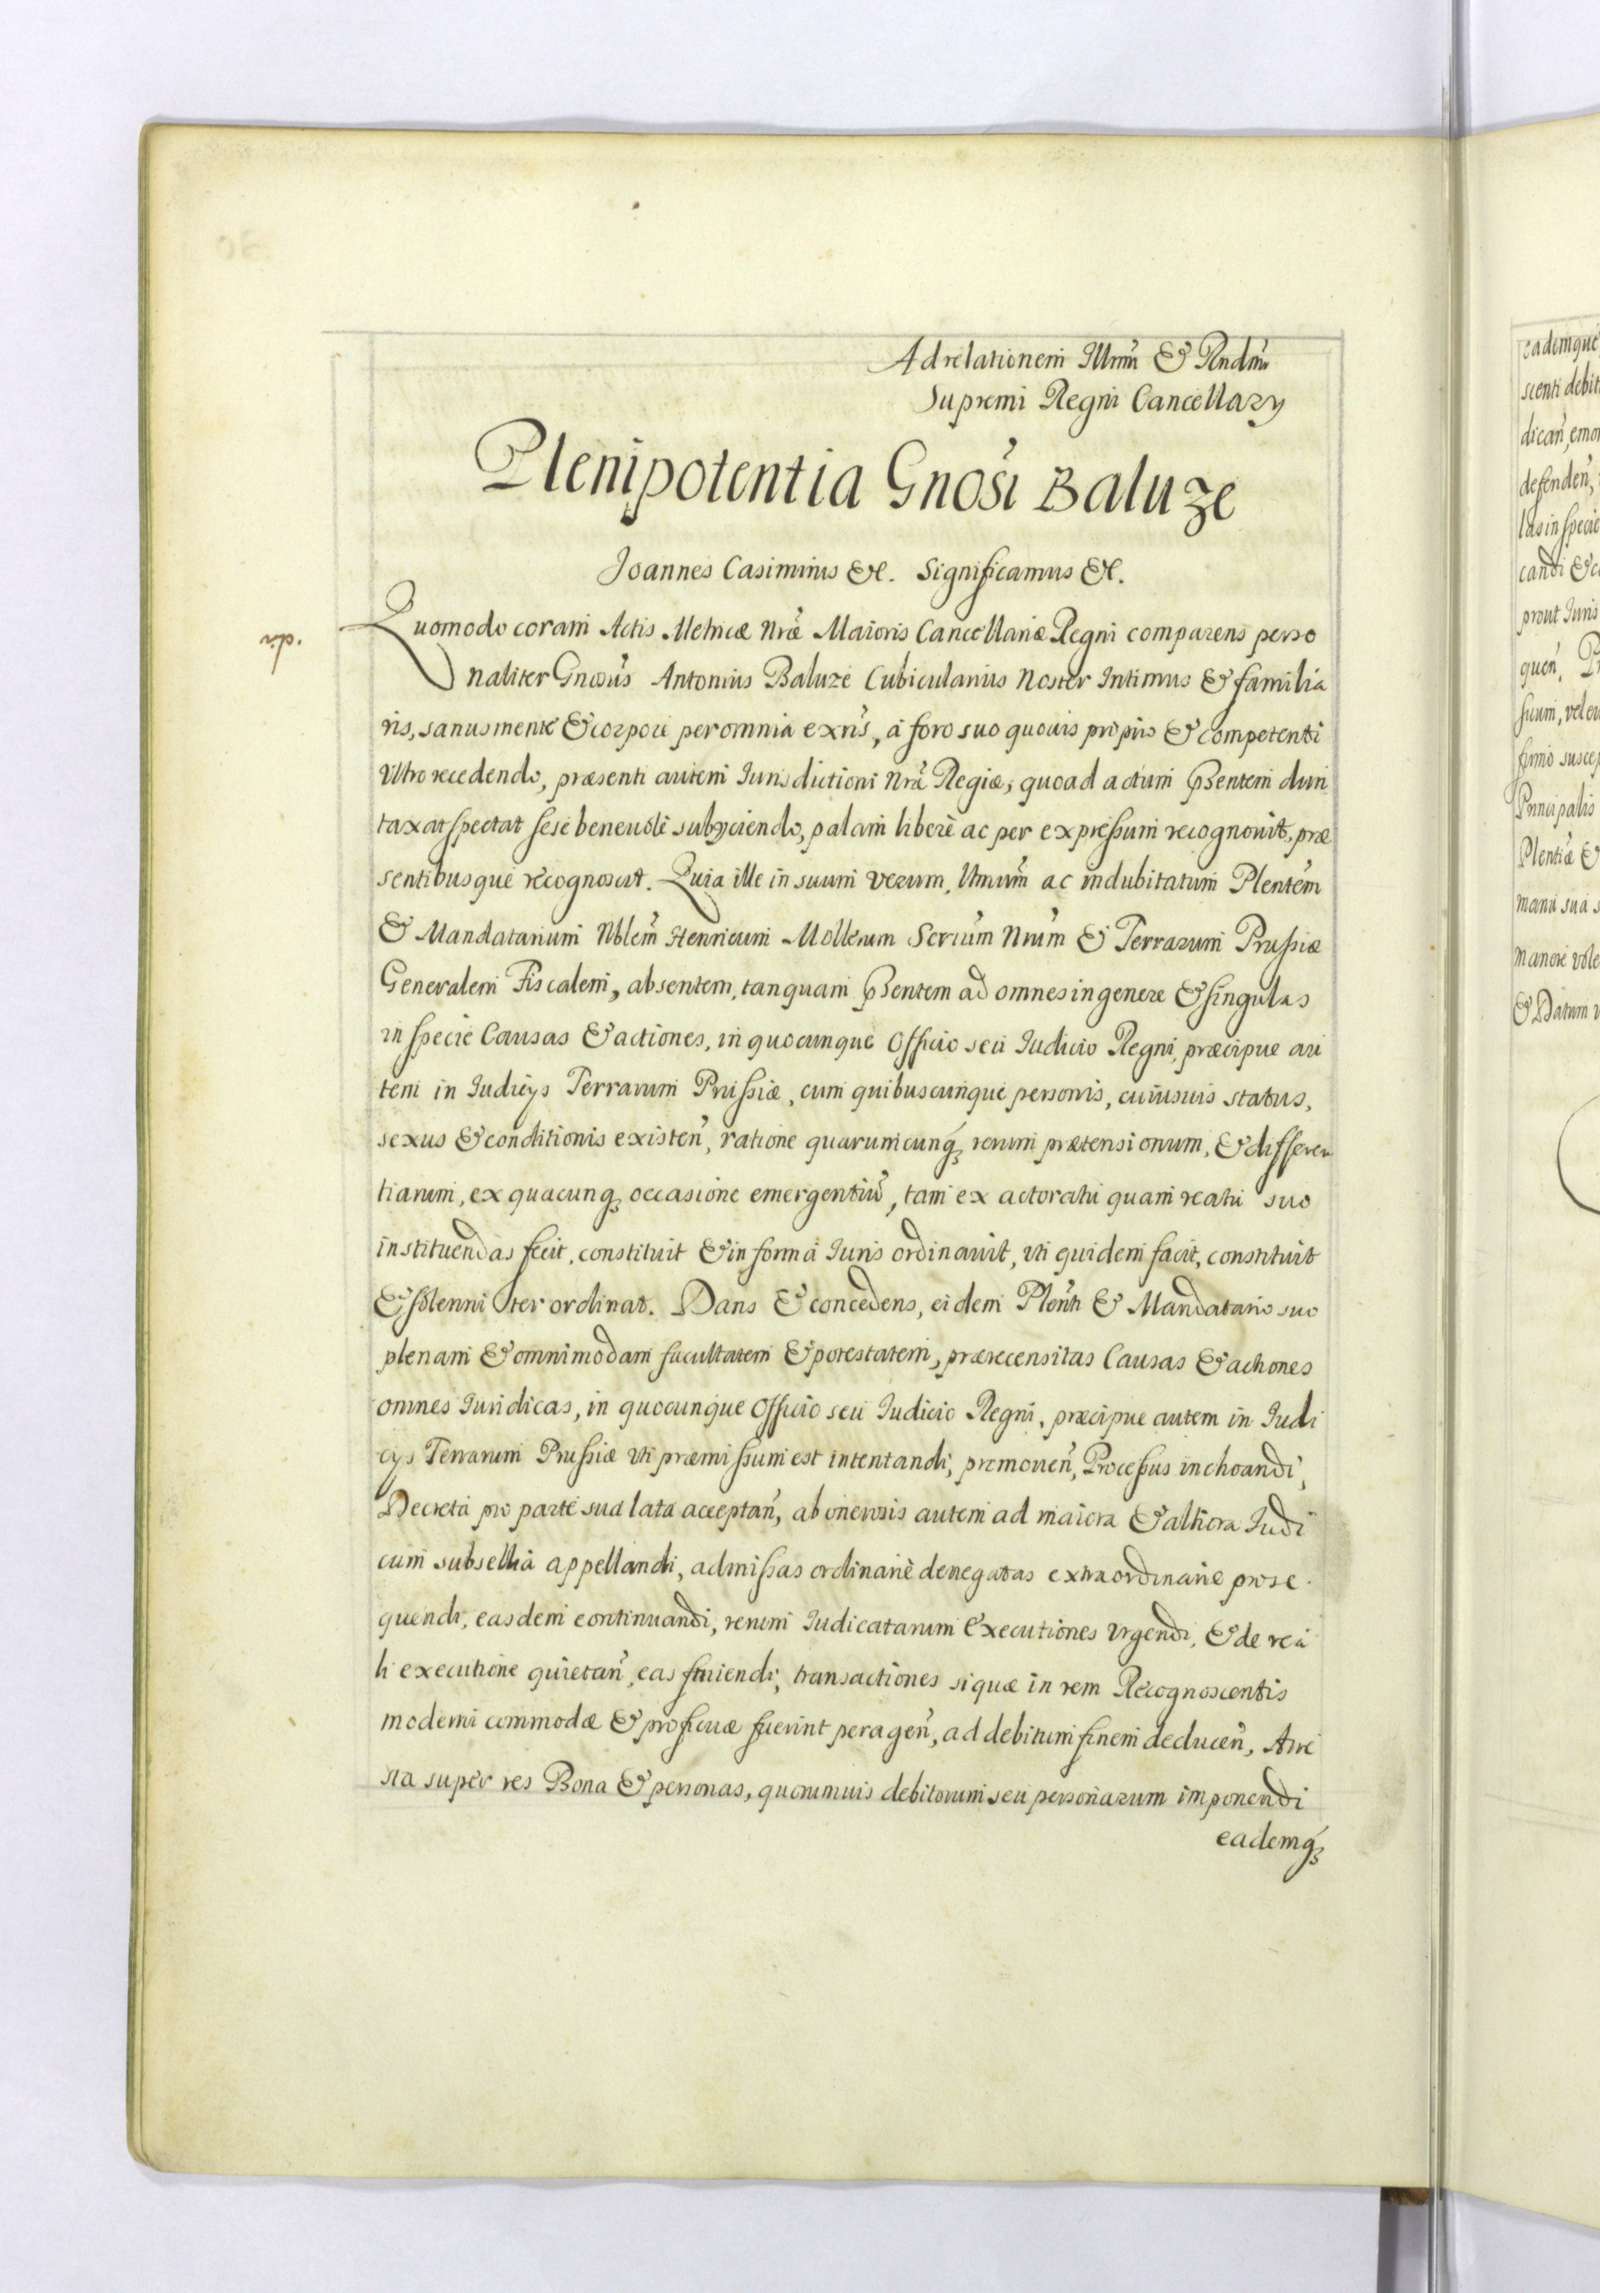 Ad relationem Illrmi & Rndmi
Supremi Regni Cancellary
Plenipotentia Gnosi Baluze
Joannes Casimirus &c. Significamus &c.
Quomodo coram Actis Metricæ Nræ Maioris Cancellariæ Regni comparens perso
naliter Gnosus Antonius Baluze Cubicularius Noster Intimus & familia
ris, sanus mente & corpore per omnia exñs, à foro suo quouis proprio & competenti
Vltro recedendo, præsenti autem Iurisdictioni Nræ Regiæ, quoad actum Pñtem dun
taxat spectat sese beneuolè subijciendo, palam liberè ac per expressum recognouit, præ
sentibusque recognoscit. Quia ille in suum verum, ltimum ac indubitatum Plentem
& Mandatarium Nblem Henricum Mollerum Scrium Nrum & Terrarum Prussiæ
Generalem Fiscalem, absentem, tanquam Pñtem ad omnes in genere & singulas
in specie Causas & actiones, in quocunque Officio seu Iudicio Regni, præcipue au
tem in Iudicijs Terrarum Prussiæ, cum quibuscunque personis, cuiusuis status,
sexus & conditionis existeñ, ratione quarumcunq; rerum prætensionum, & differen
tiarum, ex quacunq; occasione emergentiũ, tam ex actoratu quam reatu suo
instituendas fecit, constituit & in forma Iuris ordinauit, vti quidem facit, constituit
& solenni ter ordinat. Dans & concedens, eidem Pleñti & Mandatario suo
plenam & omnimodam facultatem & potestatem, præcensitas Causas & actiones
omnes Iuridicas, in quocunque Officio seu Iudicio Regni, præcipue autem in Iudi
cijs Terrarum Prussiæ vti præmissum est intentandi, promoueñ, Processus inchoandi,
Decreta pro parte sua lata acceptañ, ab onerosis autem ad maiora & altiora Iudi
cum subsellia appellandi, admissas ordinariè denegatas extraordinarie prose
quendi, easdem continuandi, rerum Iudicatarum Executiones vrgendi, & de rea
li executione quietañ, eas finiendi, transactiones si quæ in rem Recognoscentis
moderni commodæ & proficuæ fuerint perageñ, ad debitum finem deduceñ, Arre
sta super res Bona & personas, quorumuis debitorum seu personarum imponendi
eademq;